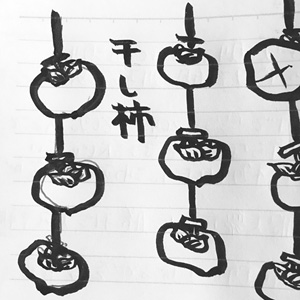 干し柿